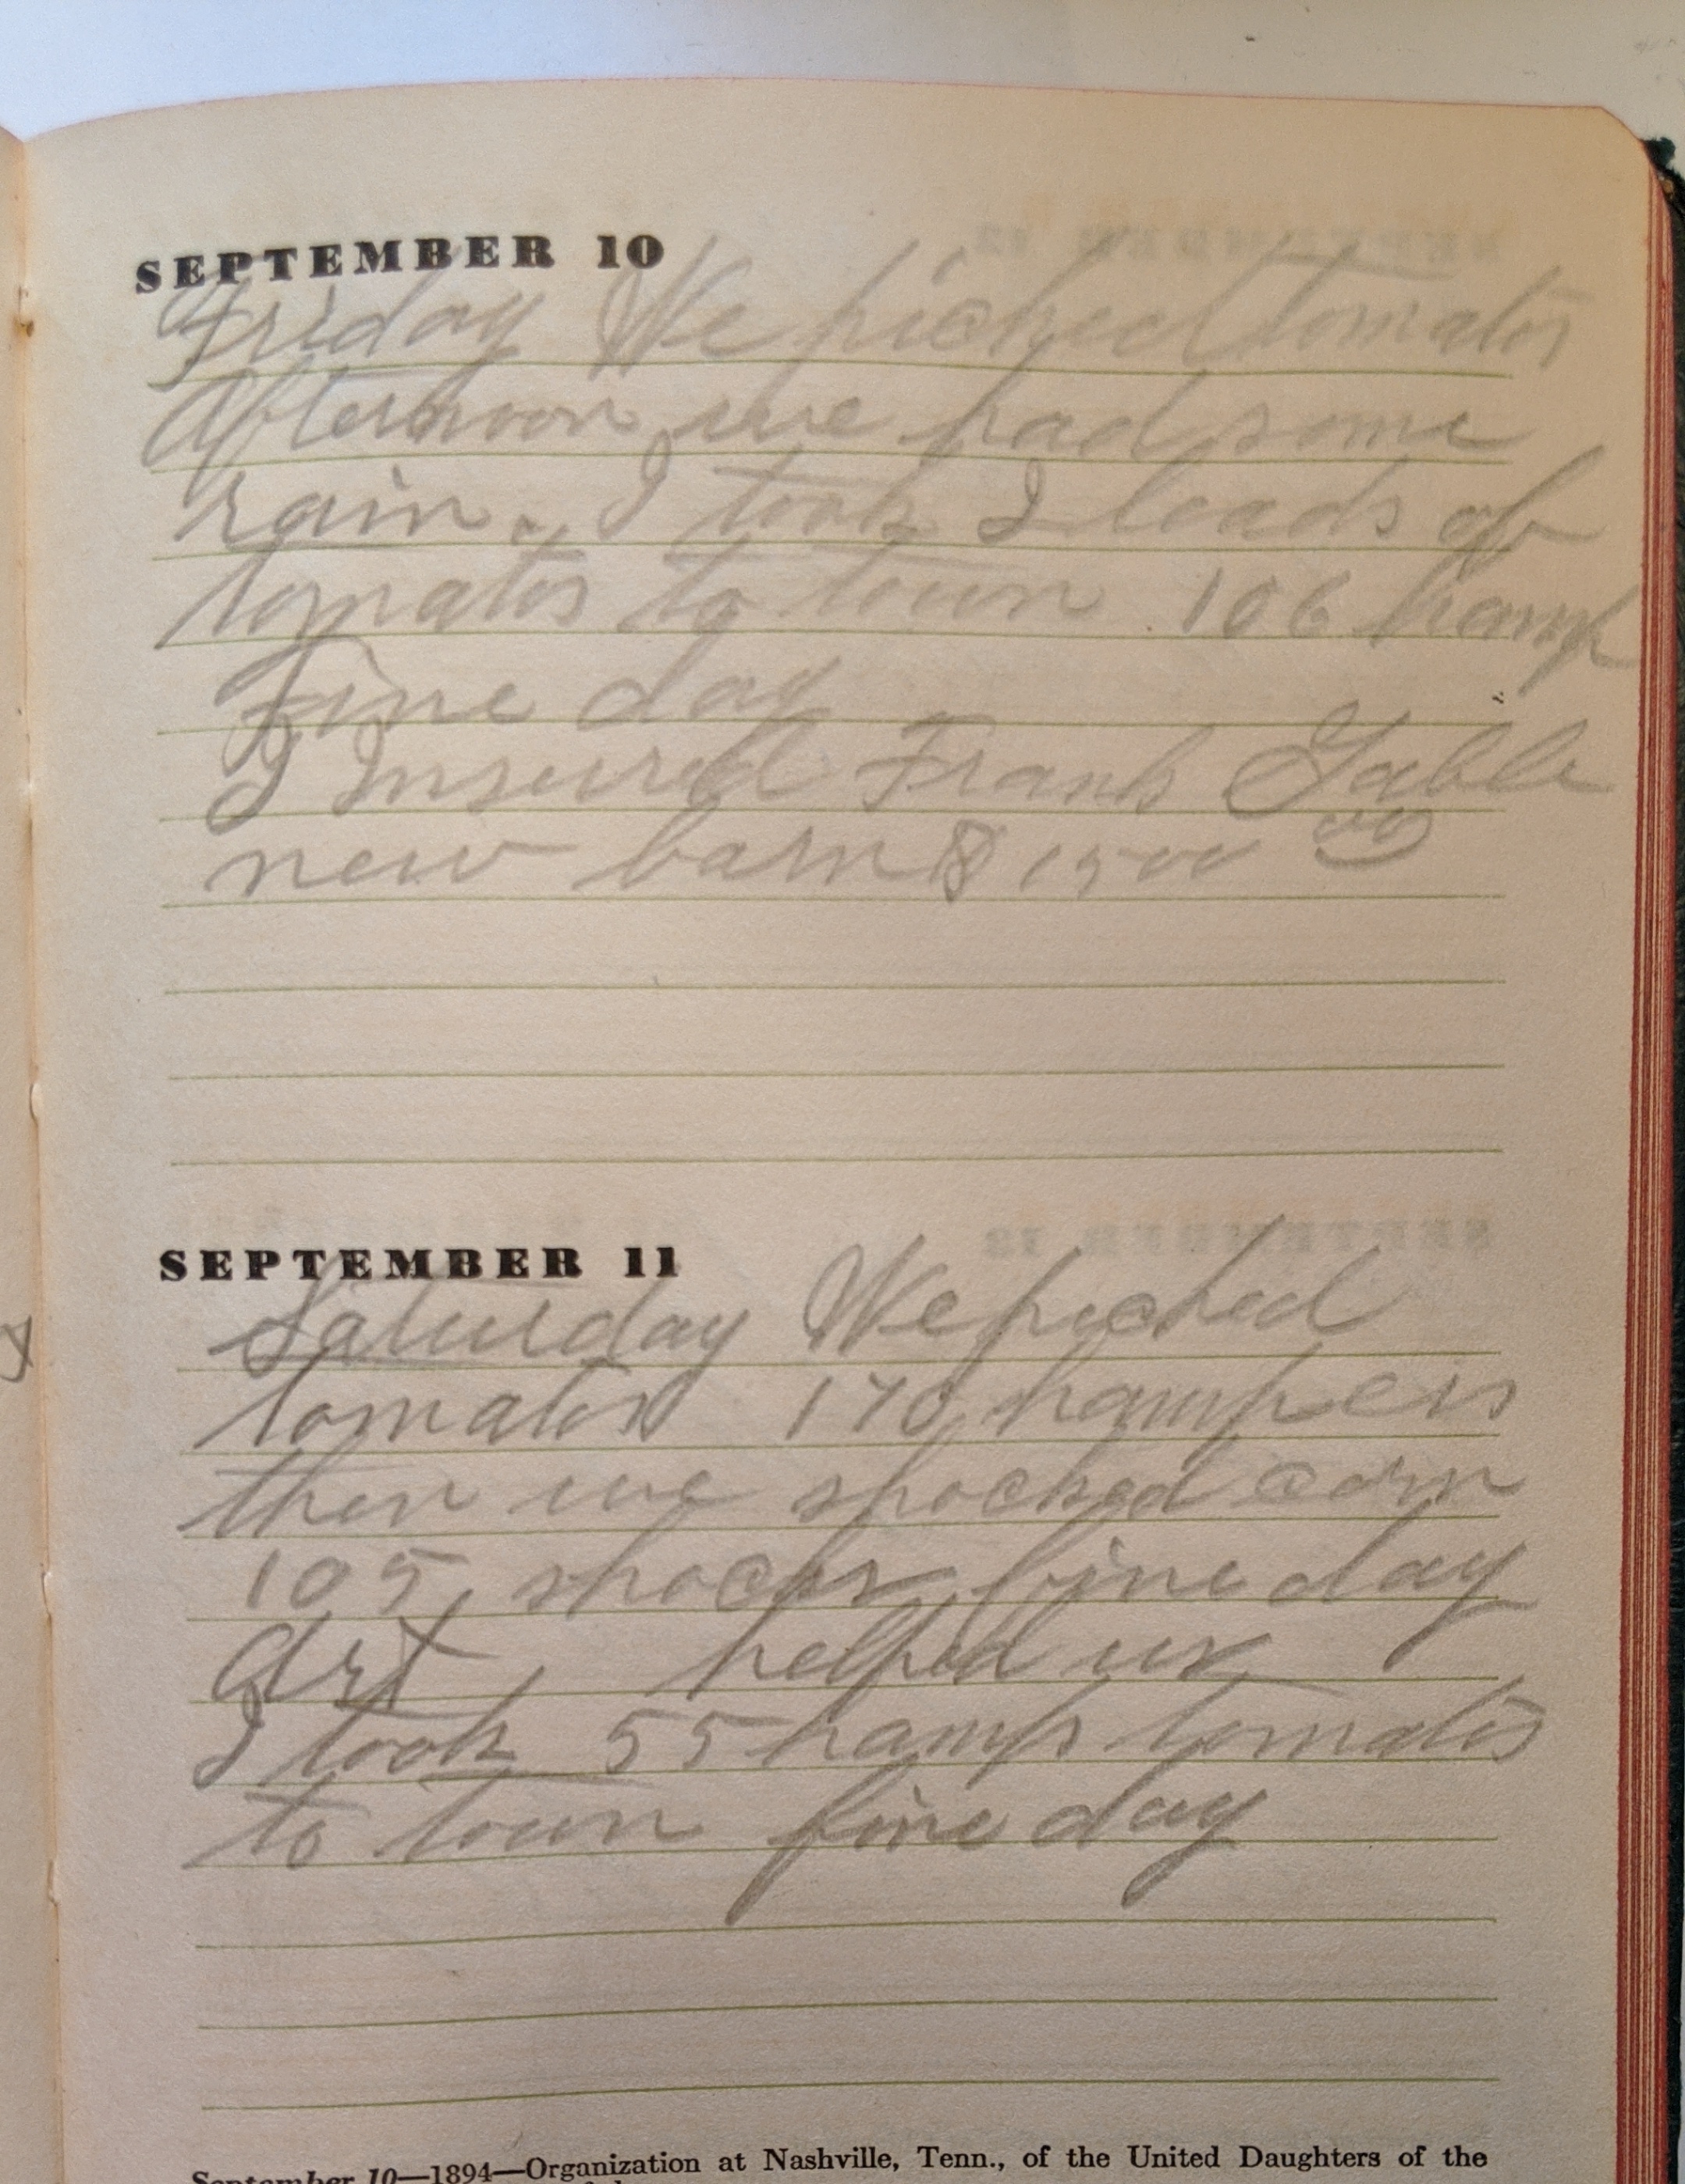 SEPTEMBER 10
Friday We picked tomatos
Afternoon we had some
rain. I took 2 loads of
tomatos to town 106 hamp
Fine day
I Insured Frank Gable
new barn $ 1500 00
SEPTEMBER 11
Saturday We picked
tomatos 170 hampers
then we shocked corn
105 shocks fine day
Art helped us
I took 55 hamps tomatos
to town fine day
September 10—1894—Organization at Nashville, Tenn., of the United Daughters of the